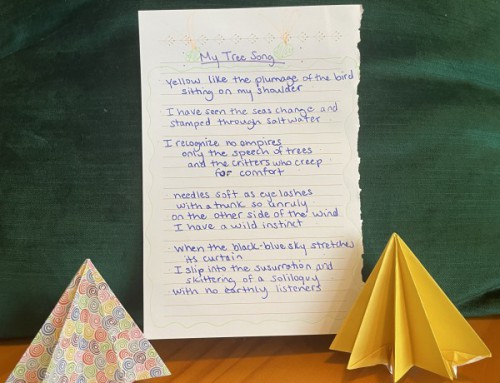 My Tree Song
Yellow like the plumage of the bird
sitting on my shoulder
I have seen the seas change and
stamped through saltwater
I recognize no empires
only the speech of trees
and the critters who creep
for comfort
needles soft as eyelashes
with a trunk so unruly
on the other side of the wind
I have a wild instinct
when the black-blue sky stretches
its curtain
I slip into the susurration and
skittering of a soliloquy
with no earthly listeners